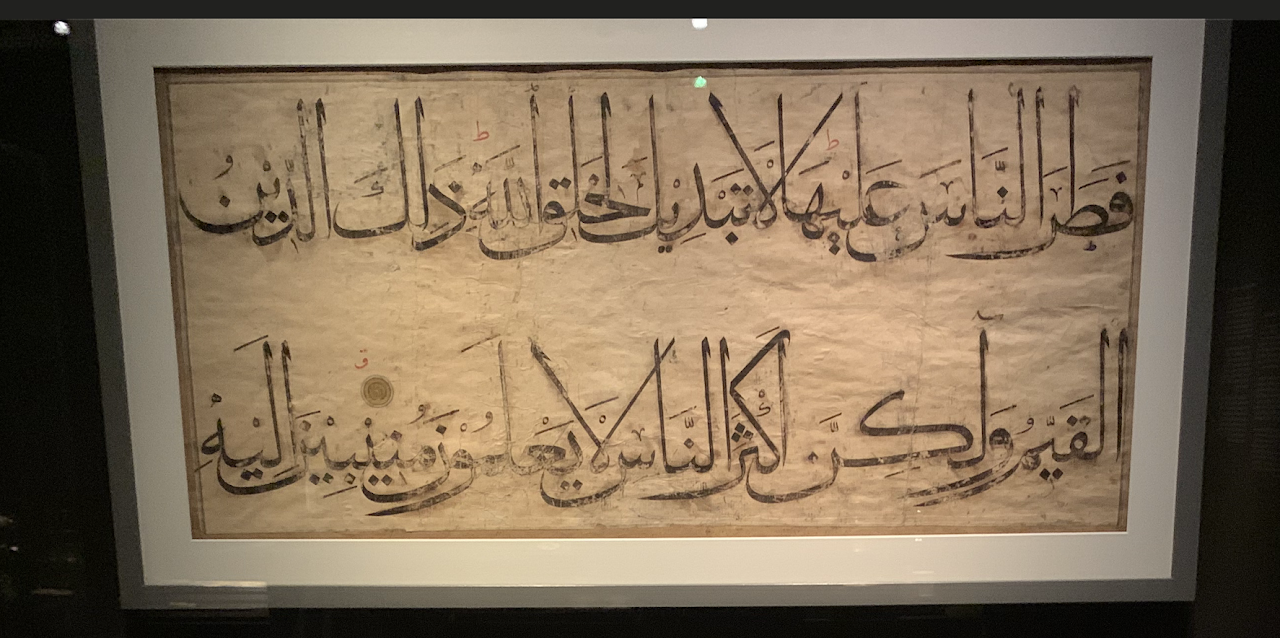 فَطَرَ النَّاسَ عَلَيْهَا ط لَا تَبْدِيلَ لِخَلْقِ اللَّهِ ط ذَٰلِكَ الدِّينُ
الْقَيِّمُ وَلَٰكِنَّ أَكْثَرَ النَّاسِ لَا يَعْلَمُونَ مُنِيبِينَ إِلَيْهِ